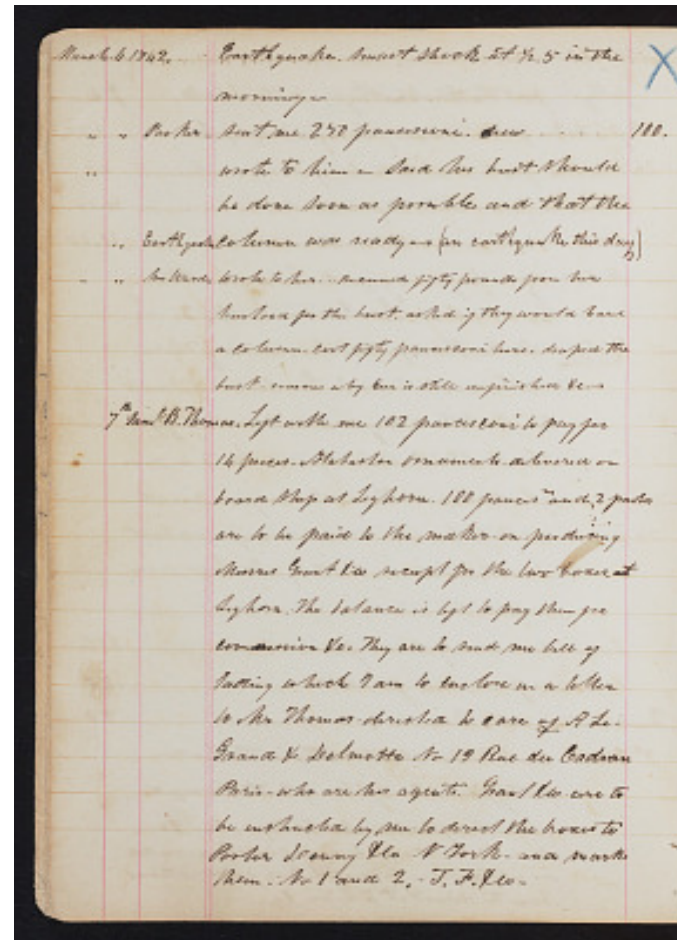 March 6 1842. - Earthquake. smart shock at ½ 5 in the
morning -
" " Parker sent me 250 pauls. 100.
" wrote to him - Said his bust should
be done soon as possible and that the
" Earthquake Column was ready - (an earthquake this day)
" " wrote to her - fifty pounds from her
husband for the bust. asked if they would have
a column. cost fifty here. draped the
bust - why One is still unfinished &c -
7th B. Thomas. Left with me 102 to pay for
14 pieces - Alabaster ornaments delivered on
board Ship at Leghorn. 100 and 2 pauls
are to be paid to the maker on producing
Messrs Grant &co receipt for the two boxes at
Leghorn. The balance is left to pay them for
commission &c. They are to send me bill of
lading which I am to enclose in a letter
to Mr Thomas directed to care of A Le-
Grand & Delmotte No 19 Rue du Cadran
Paris - who are his agents. Grant &co are to
be instructed by me to direct the boxes to
&co N York - and mark
them - No 1 and 2, - T. F. &co -